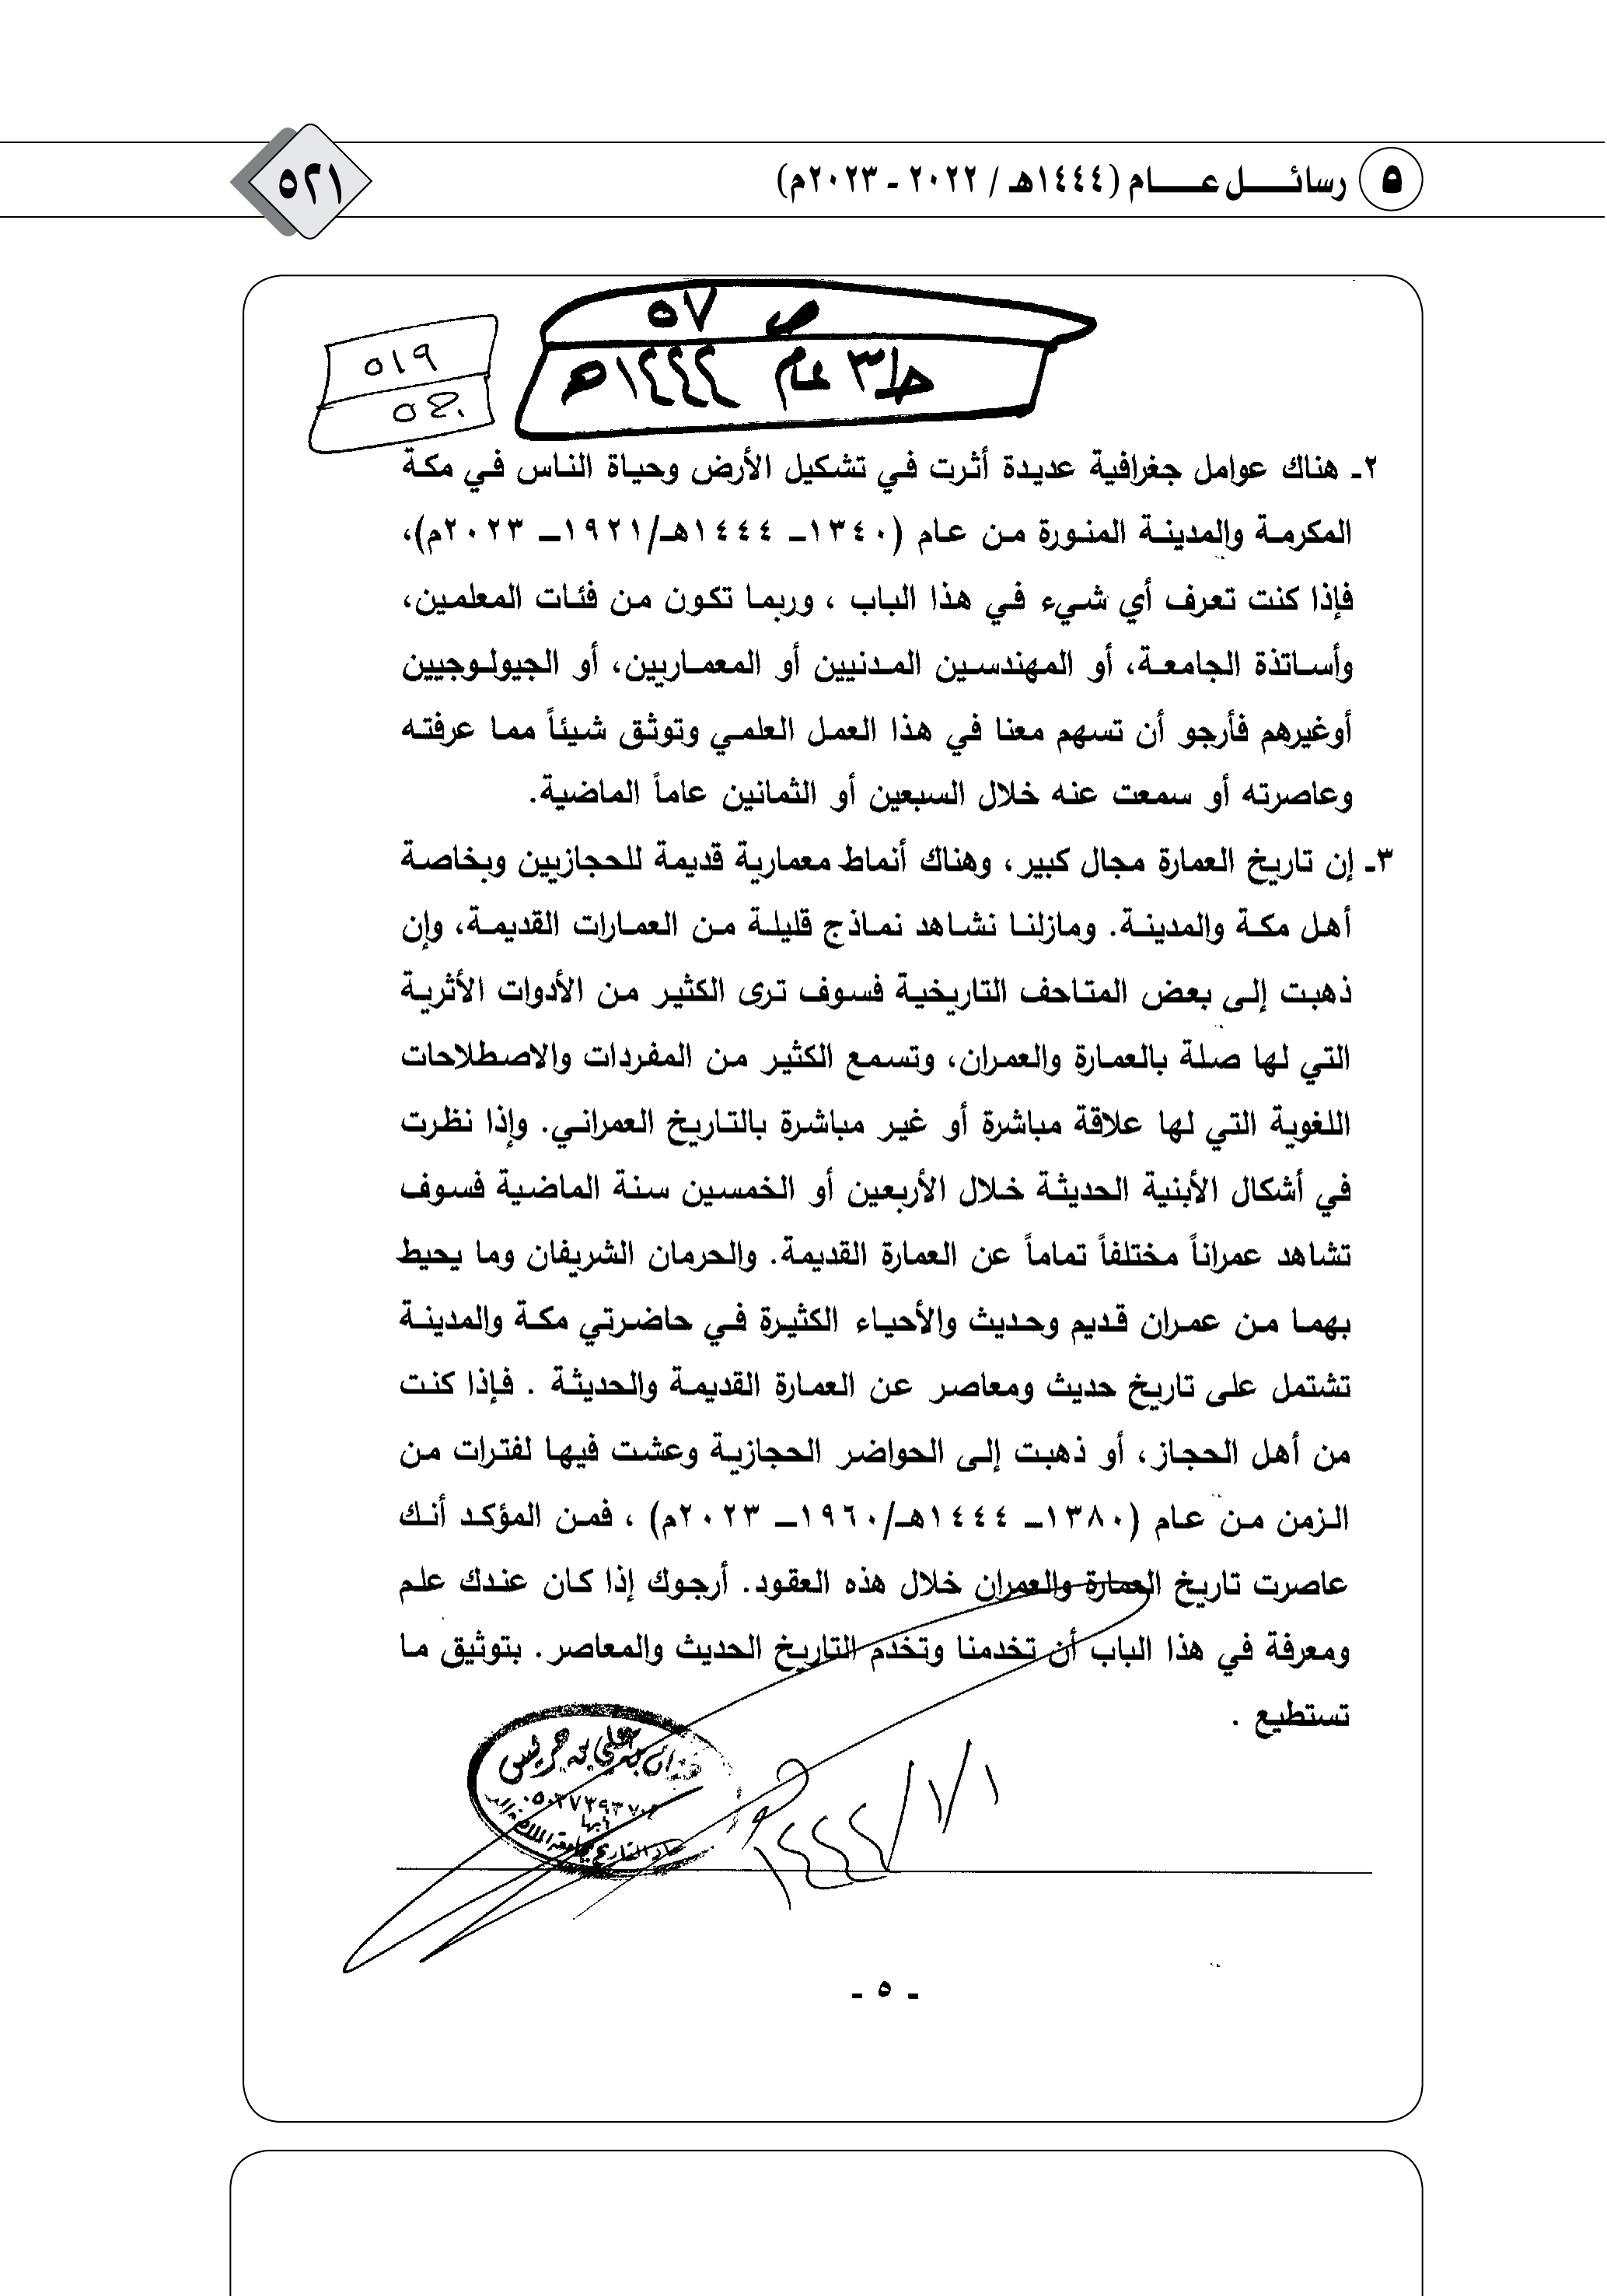 ٥ رسائل عام (١٤٤٤هـ / ٢٠٢٢ - ٢٠٢٣م)
٥٢١
ص ٥٧
ج/٣ عام ١٤٤٤هـ
٥١٩
٥٢٠
٢ـ هناك عوامل جغرافية عديدة أثرت في تشكيل الأرض وحياة الناس في مكة
المكرمة والمدينة المنورة من عام (١٣٤٠ـ ١٤٤٤هـ/١٩٢١ـ ٢٠٢٣م)،
فإذا كنت تعرف أي شيء في هذا الباب ، وربما تكون من فئات المعلمين،
وأساتذة الجامعة، أو المهندسين المدنيين أو المعماريين، أو الجيولوجيين
أوغيرهم فأرجو أن تسهم معنا في هذا العمل العلمي وتوثق شيئاً مما عرفته
وعاصرته أو سمعت عنه خلال السبعين أو الثمانين عاماً الماضية.
٣ـ إن تاريخ العمارة مجال كبير، وهناك أنماط معمارية قديمة للحجازيين وبخاصة
أهل مكة والمدينة. ومازلنا نشاهد نماذج قليلة من العمارات القديمة، وإن
ذهبت إلى بعض المتاحف التاريخية فسوف ترى الكثير من الأدوات الأثرية
التي لها صلة بالعمارة والعمران، وتسمع الكثير من المفردات والاصطلاحات
اللغوية التي لها علاقة مباشرة أو غير مباشرة بالتاريخ العمراني. وإذا نظرت
في أشكال الأبنية الحديثة خلال الأربعين أو الخمسين سنة الماضية فسوف
تشاهد عمراناً مختلفاً تماماً عن العمارة القديمة. والحرمان الشريفان وما يحيط
بهما من عمران قديم وحديث والأحياء الكثيرة في حاضرتي مكة والمدينة
تشتمل على تاريخ حديث ومعاصر عن العمارة القديمة والحديثة . فإذا كنت
من أهل الحجاز، أو ذهبت إلى الحواضر الحجازية وعشت فيها لفترات من
الزمن من عام (١٣٨٠ـ ١٤٤٤هـ/١٩٦٠ـ ٢٠٢٣م) ، فمن المؤكد أنك
عاصرت تاريخ العمارة والعمران خلال هذه العقود. أرجوك إذا كان عندك علم
ومعرفة في هذا الباب أن تخدمنا وتخدم التاريخ الحديث والمعاصر. بتوثيق ما
تستطيع .
بن علي بن جريس
أبها
١/١/١٤٤٤هـ
- ٥ -